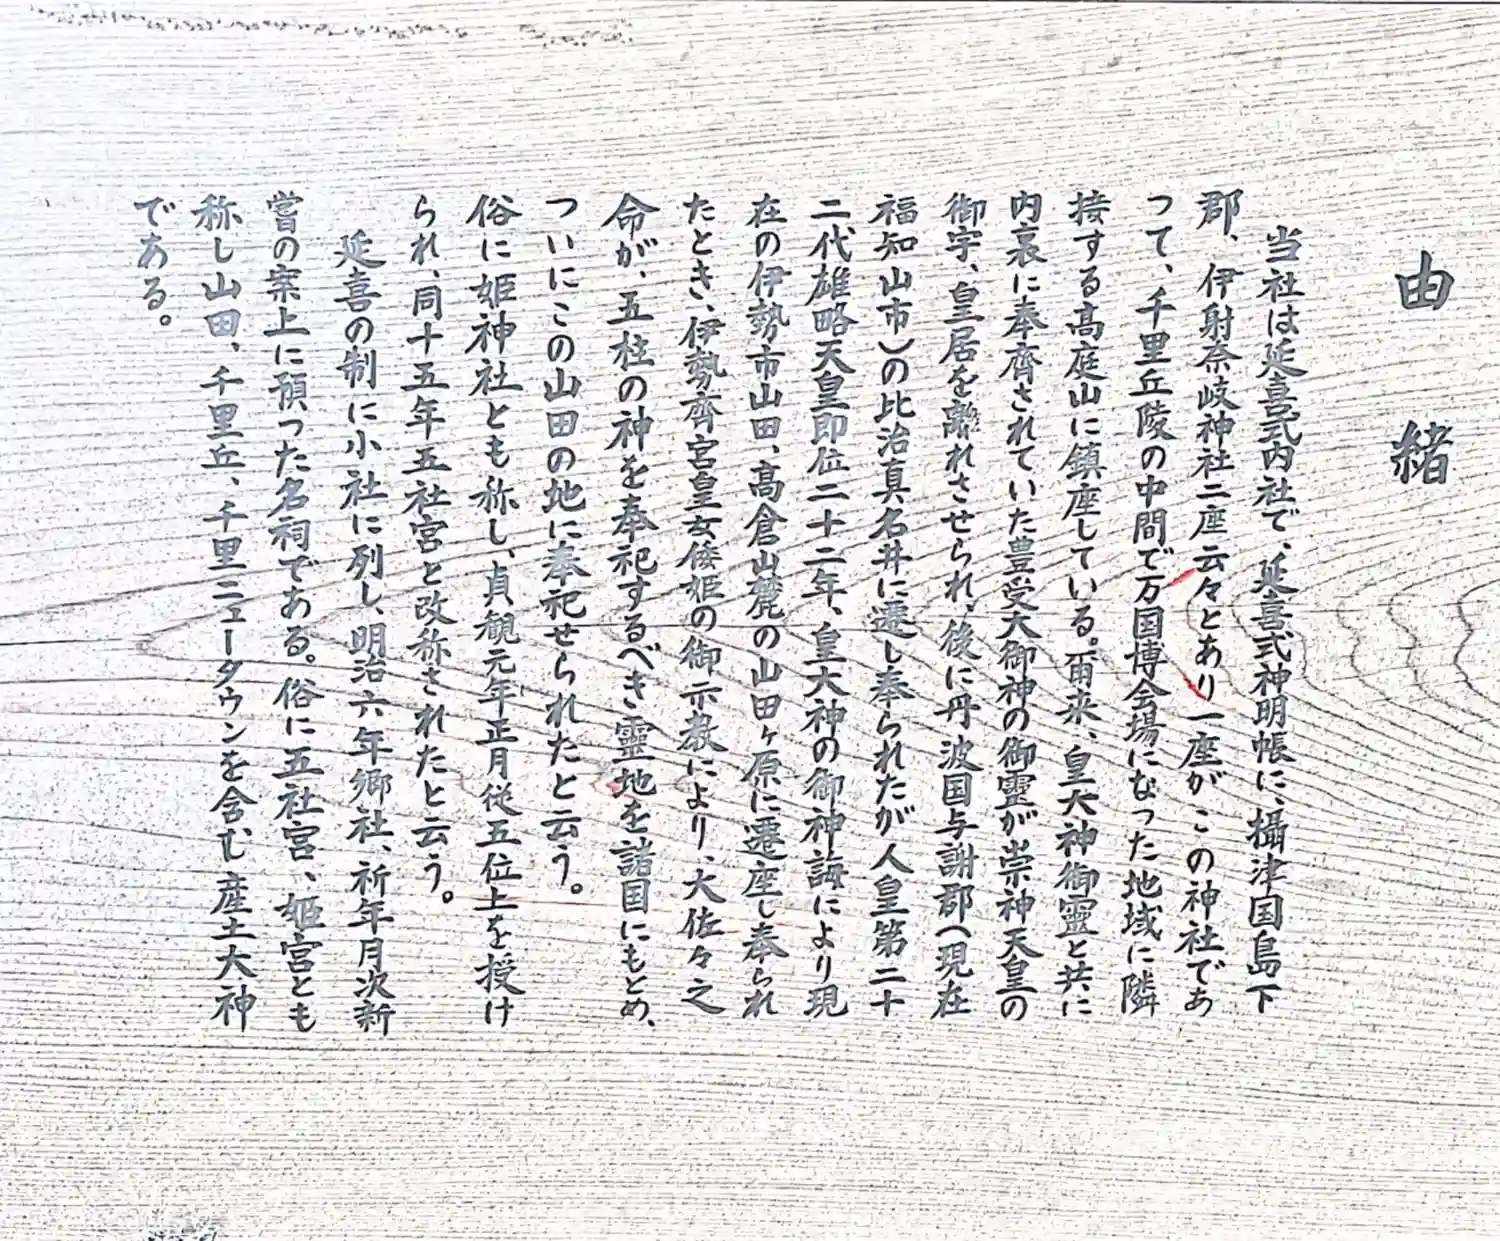 由緒
当社は延喜式内社で、延喜式神明帳に、攝津国島下
郡、伊射奈岐神社二座云々とあり一座がこの神社であ
つて、千里丘陵の中間で万国博会場になった地域に隣
接する高庭山に鎮座している。爾来、皇大神御霊と共に
内裏に奉齊されていた豊受大御神の御靈が崇神天皇の
御宇、皇居を離れさせられ、後に丹波国与謝郡(現在
福知山市)の比治真名井に遷し奉られたが人皇第二十
二代雄略天皇即位二十二年、皇大神の御神誨により現
在の伊勢市山田、高倉山麓の山田ヶ原に遷座し奉られ
たとき、伊勢齊宮皇女倭姫の御示教により、大佐々之
命が、五柱の神を奉祀するべき靈地を諸国にもとめ、
ついにこの山田の地に奉祀せられたと云う。
俗に姫神社とも称し、貞観元年正月従五位上を授け
られ、同十五年五社宮と改称されたと云う。
延喜の制に小社に列し、明治六年郷社、祈年月次新
嘗の案上に預った名祠である。俗に五社宮、姫宮とも
称し山田、千里丘、千里ニュータウンを含む産土大神
である。